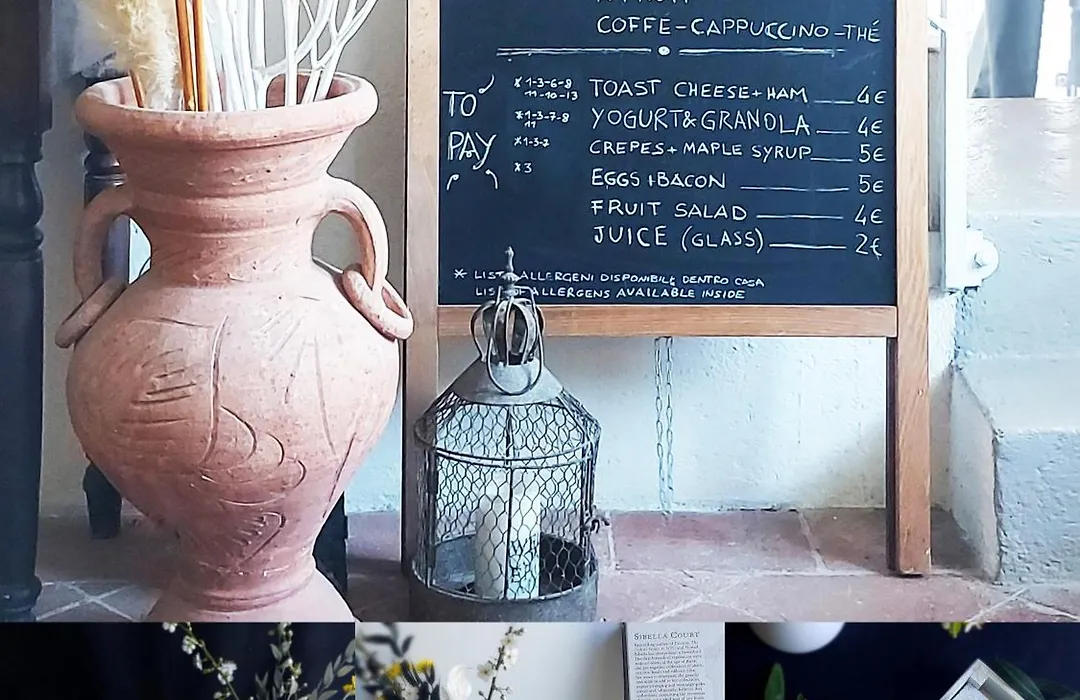 COFFE-CAPPUCCINO-THÉ
TO PAY
*1-3-6-8
11-10-13
TOAST CHEESE+HAM 4€
*1-3-7-8
11
YOGURT&GRANOLA 4€
*1-3-7
CREPES+ MAPLE SYRUP 5€
*3
EGGS+BACON 5€
FRUIT SALAD 4€
JUICE (GLASS) 2€
* LIST ALLERGENI DISPONIBILE DENTRO CASA
LIST OF ALLERGENS AVAILABLE INSIDE
SIBELLA COURT